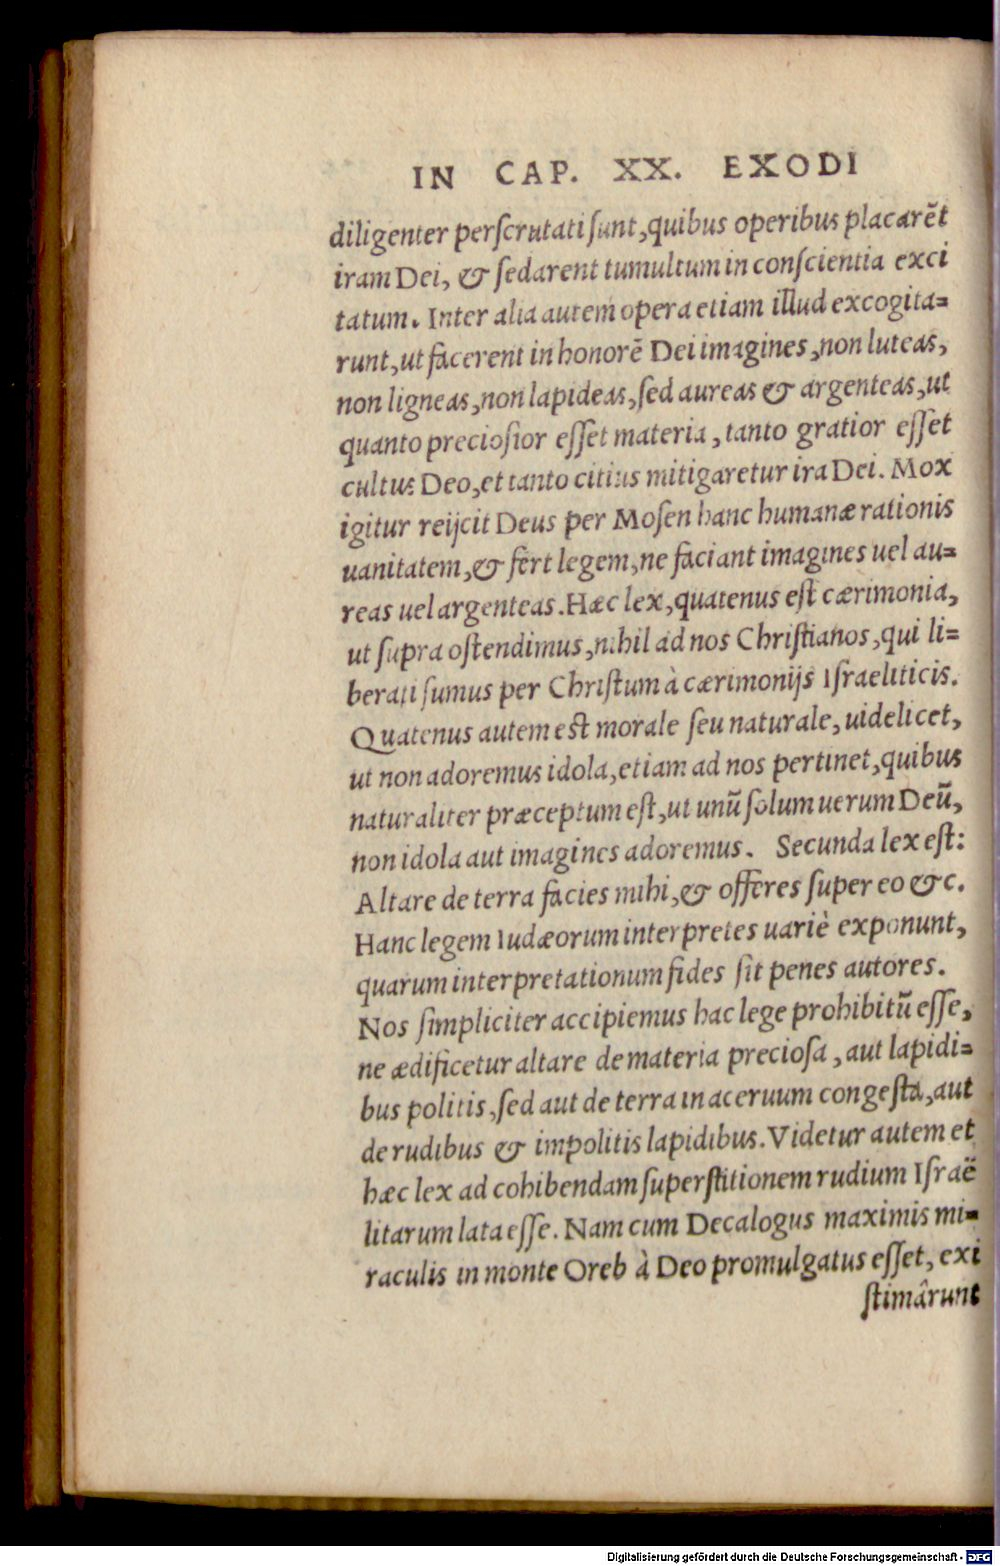 IN CAP. XX. EXODI
diligenter perſcrutati ſunt, quibus operibus placarēt
iram Dei, & ſedarent tumultum in conſcientia exci
tatum. Inter alia autem opera etiam illud excogita=
runt, ut facerent in honorē Dei imagines, non luteas,
non ligneas, non lapideas, ſed aureas & argenteas, ut
quanto precioſior eſſet materia, tanto gratior eſſet
cultus Deo, et tanto citius mitigaretur ira Dei. Mox
igitur reijcit Deus per Moſen hanc humanæ rationis
uanitatem, & fert legem, ne faciant imagines uel au=
reas uel argenteas. Hæc lex, quatenus eſt cærimonia,
ut ſupra oſtendimus, nihil ad nos Chriſtianos, qui li=
berati ſumus per Chriſtum à cærimonijs Iſraeliticis.
Quatenus autem eſt morale ſeu naturale, uidelicet,
ut non adoremus idola, etiam ad nos pertinet, quibus
naturaliter præceptum eſt, ut unū ſolum uerum Deū,
non idola aut imagines adoremus. Secunda lex eſt:
Altare de terra facies mihi, & offeres ſuper eo &c.
Hanc legem Iudæorum interpretes uariè exponunt,
quarum interpretationum fides ſit penes autores.
Nos ſimpliciter accipiemus hac lege prohibitū eſſe,
ne ædificetur altare de materia precioſa, aut lapidi=
bus politis, ſed aut de terra in aceruum congeſta, aut
de rudibus & impolitis lapidibus. Videtur autem et
hæc lex ad cohibendam ſuperſtitionem rudium Iſraë
litarum lata eſſe. Nam cum Decalogus maximis mi=
raculis in monte Oreb à Deo promulgatus eſſet, exi
ſtimârunt
Digitalisierung gefördert durch die Deutsche Forschungsgemeinschaft - DFG